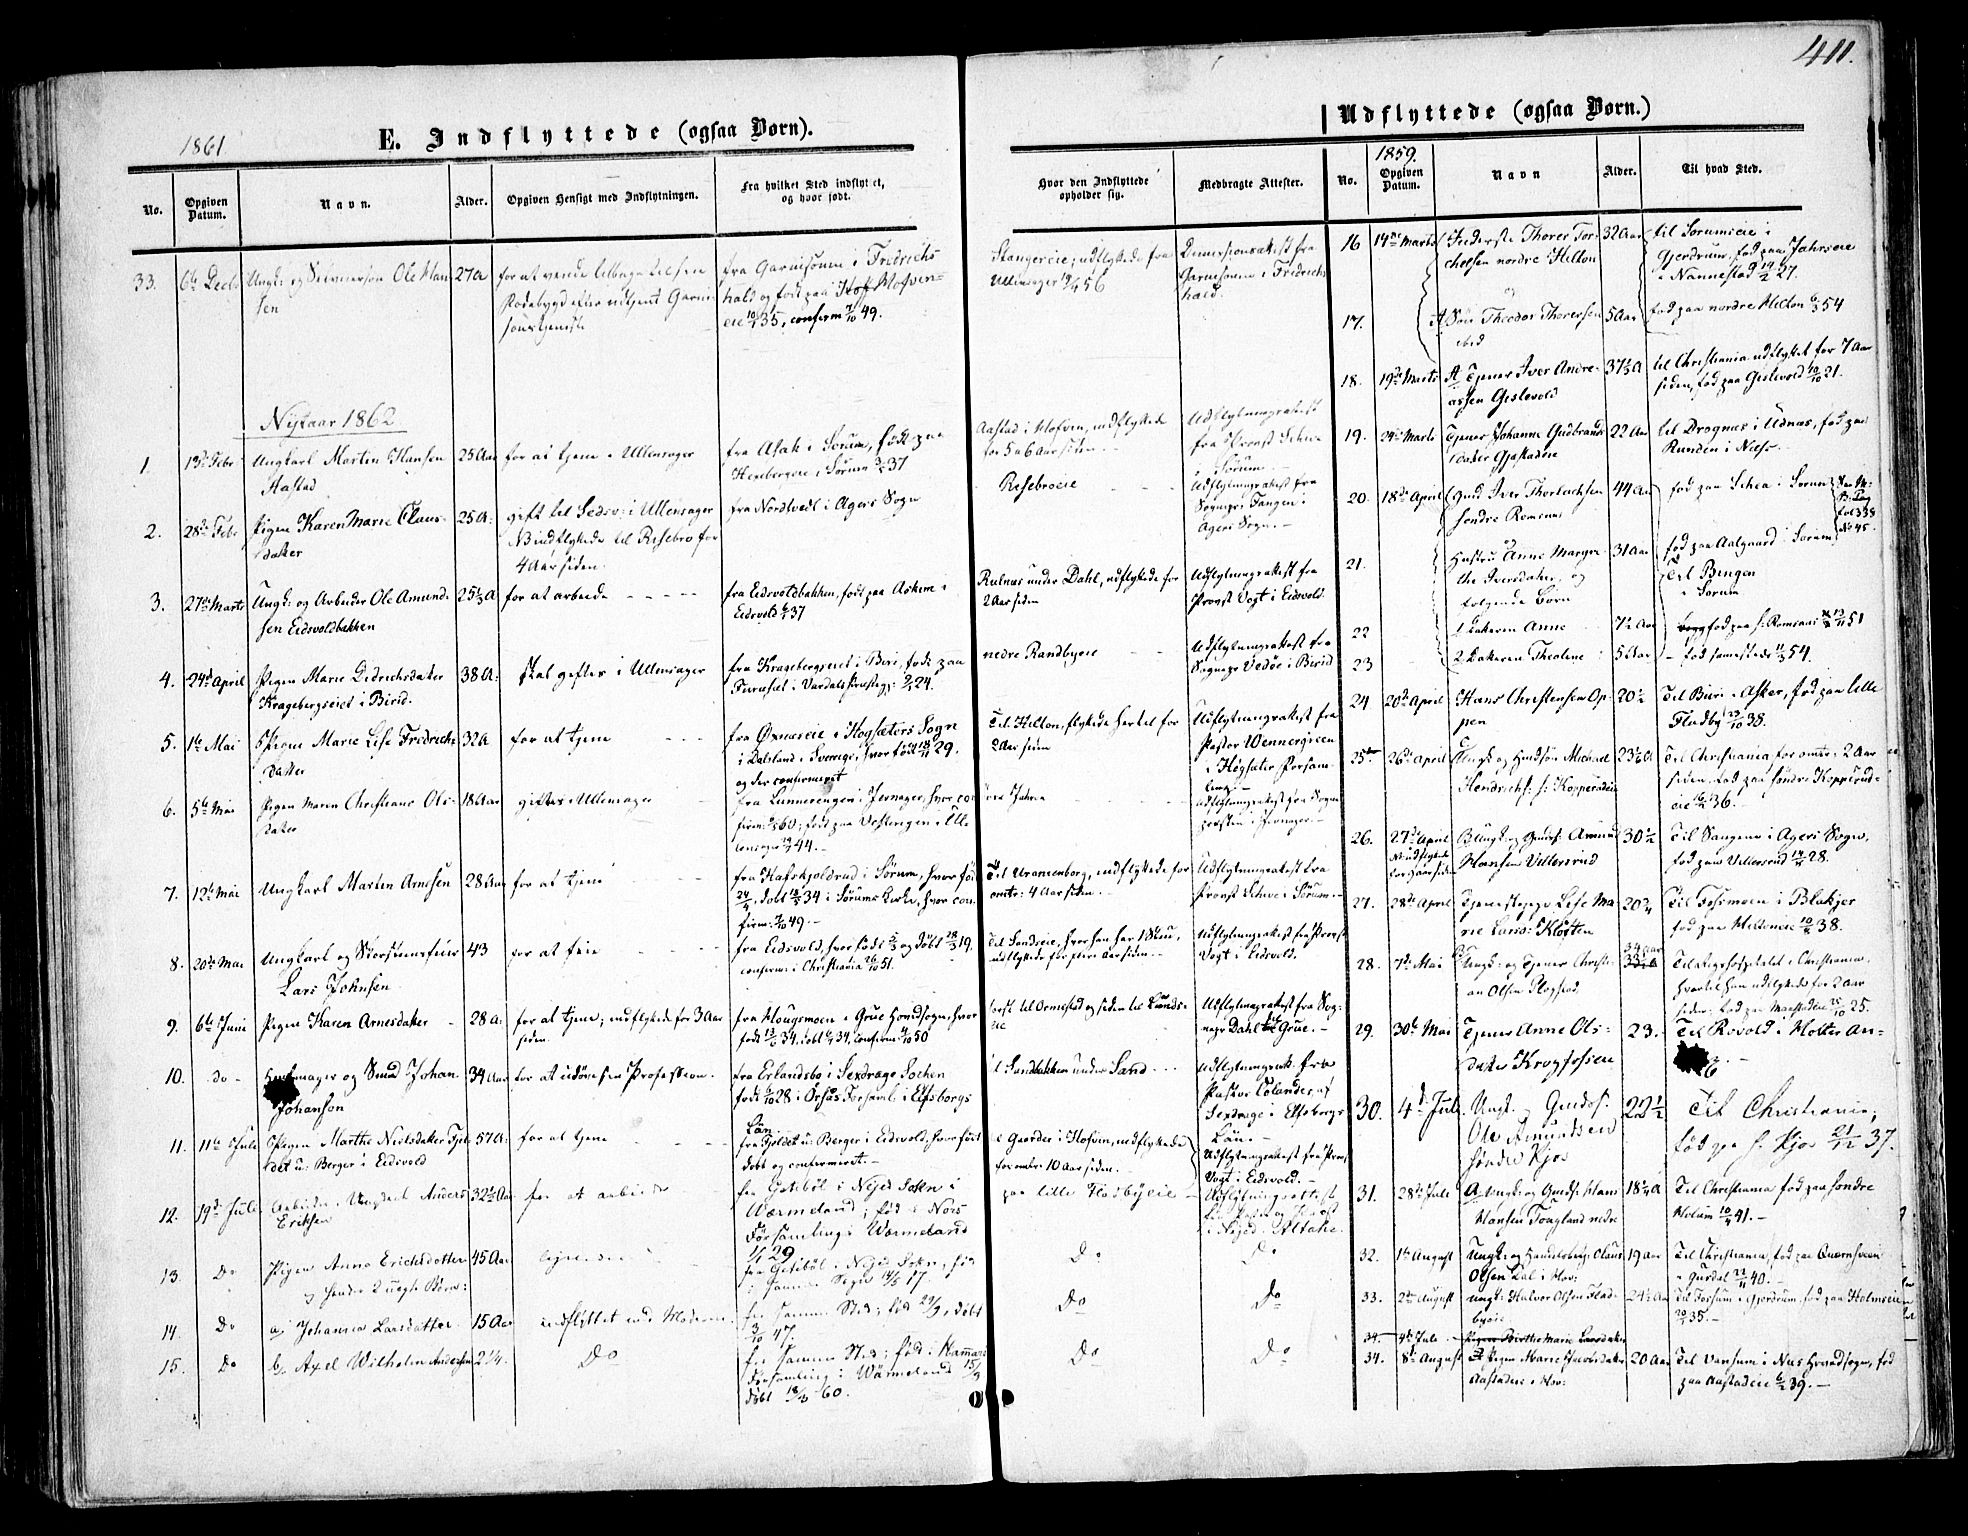 411.
1861
E. Indflyttede (ogsaa Børn).
No.
Opgiven Datum.
Navn.
Alder.
Opgiven Hensigt med Indflytningen.
Fra hvilket Sted indflyttet, og hvor født.
Hvor den Indflyttede opholder sig.
Medbragte Attester.
33.
6te Decbr
27 A
fra Garnisonen i Fredrichs
hald og født paa
eie 10/1 35, confirm 7/10 49.
Stangereie; udflyttede fra
Garnisonen i Fredrichs
hald.
Nytaar 1862
1.
13de Febr
Ungkarl Morten Hansen
Aastad
25 Aar
for at tjene i Ullensager
fra Asak i Sørum, født paa
Hexebergeie i Sørum 3/5 37
Aastad i Hofvin, indflyttede
for 5 a 6 Aar siden
Udflytningsattest
fra Provst Schive
i Sørum.
2.
28de Febr
Pigen Karen Marie Claus-
datter
25 A:
gift til Sedsv: i Ullensager
NB indflyttede til Risebro for
4 Aar siden.
fra Nordtvedt i Agers Sogn
Risebroeie
Udflytningsattest fra
Sognepr. Tangen i
Agers Sogn.
3.
27de Marts
Ungk: og Arbeider Ole Amund-
sen Eidsvoldbakken
25 1/3 A
for at arbeide
fra Eidsvoldbakken, født paa Askim i
Eidsvold 6/1 37
Rulnæs under Dahl, indflyttede for
2 Aar siden
Udflytningsattest fra
Provst Vogt i Eidsvold.
4.
24de April
Pigen Marie Didrichsdatter
Kragebergseiet i Birid.
38 A:
skal giftes i Ullensager
fra Kragebergseiet i Biri, født paa
Furuset i Vardals Præstegj: 9/1 24.
nedre Randbyeie
Udflytningsattest fra
Sognepr Vedøe i Birid
5.
1te Mai
Pigen Marie Lise Fredrichs
datter
32 A
for at tjene
fra Øxneseie i Høgsæters Sogn
i Dalsland i Sverrige, hvor født 18/11 29.
og der confirmeret
Til Hilton, flyttede hertil for
2 Aar siden
Udflytningsattest fra
Pastor Wennergreen
i Høgsæter Forsam-
ling.
6.
5te Mai
Pigen Maren Christiane Ols-
datter
18 Aar
giftes i Ullensager
fra Lunnerengen i Jevnager, hvor con
firm: 60; født paa Vestengen i Ulle
sager 44.
øvre Jahren
Udflytningsattest fra Sogne
præsten i Jevnager.
7.
12te Mai
Ungkarl Martin Arnesen
28 Aar
for at tjene
fra Hafskjoldrud i Sørum, hvor født
24/4, døbt 18/5 34 i Sørums Kirke, hvor con-
firm: 7/10 49.
Til Uranienborg, indflyttede for
omtr: 4 Aar siden.
Udflytningsattest fra
Provst Schive i Sørum.
8.
20de Mai
Ungkarl og Skorsteensfeier
Lars Johnsen
43
for at feie
fra Eidsvold, hvor født 5/3 og døbt 28/3 19,
confirm: i Christiania 26/10 51.
Til Sandseie, hvor han har 1 Stue,
indflyttede for flere Aar siden.
Udflytningsattest fra Provst
Vogt i Eidsvold.
9.
6te Juni
Pigen Karen Arnesdatter
28 A:
for at tjene; indflyttede for 3 Aar
siden.
fra Hougsmoen i Grue Hovedsogn, hvor
født 13/5 34, døbt 34, confirm: 4/10 50
først til Ormestad og siden til Lunds-
eie
Udflytningsattest fra Sog-
nepr Dahl til Grue.
10.
do
og Smed Johan
Johansen
34 Aar
for at udøve sin Profession.
fra Erlandsbo i Sexdrage Sochen
født 6/10 28 i Orsås Forsaml: i Elfsborgs
Län.
til Sandbakken under Sand
Udflytningsatt. fra
Pastor Colander af
Sexdrage i Elfsborgs
Län.
11.
11te Juli
Pigen Marthe Nielsdatter Gjel-
det u: Berger i Eidsvold
57 A:
for at tjene
fra Gjeldet u: Berger i Eidsvold, hvor født
døbt og confirmeret.
Gjærder i Hofvin, indflyttede
for omtr: 10 Aar siden.
Udflytningsattest fra Provst
Vogt i Eidsvold.
12.
19de Juli
Arbeider Anders
Eriksen
32 1/2 Aar
for at arbeide
fra Getebôl i Nyed Sokn i
Wærmeland; fød i Nors
Församling i Wärmeland
1/1 29
paa lille Flødbyeie
Udflytningsattest
i Nyed
13.
Do
Pigen Anna Erichsdotter
og hendes 2 uægte Børn:
45 Aar
fra Getebôl i Nyed Sokn, fød
i samme Sogn 14/5 17.
Do
Do
14.
Do
a) Johanna Larsdatter
15 Aar
indflyttet med Moderen
fra samme Sted; fød 29/9, døbt
3/10 47.
Do
Do
15.
Do
b) Axel Wilhelm Andersen
2 1/4.
Do
fra samme Sted; fød i
Församling i Wärmeland 15/3
døbt 18/3 60.
Do
Do
Udflyttede (ogsaa Børn.)
No.
1859.
Opgiven Datum.
Navn
Alder.
Til hvad Sted.
16
14de Marts
Inderste Thorer Tor-
chelsen nordre Hilton
32 Aar
til Sørumseie i
Gjerdrum, fød paa Jahrseie
i Nannestad 14/2 27.
og
17.
A Søn Theodor Thorersen
ibid
5 Aar
fød paa nordre Hilton 6/3 54
18.
19de Marts
A Tjener Iver Andre-
assen Gislevold
37 1/2 A
til Christiania udflyttet for 7 Aar
siden, fød paa Gislevold 10/10 21.
19.
24de Marts
Tjener Johanne Gudbrands
datter Gjestadeie
22 Aar
til Dragnæs i Udnæs, fød paa
Runden i Næs
20.
18de April
Gmd Iver Thorlachsen
søndre Romsaas
44 Aar
fød paa Schea i Sørum
21.
Hustru Anne Margre-
the Iversdatter, og
følgende Børn
31 Aar
fød paa Aalgaard i Sørum
til Bingen
i Sørum
fol 338
No 45.
22
1 Datteren Anne
7 1/2 Aar
fød paa s: Romsaas 13/11 51
23
2 Datteren Theoline
5 Aar
fød sammesteds 54.
24
20de April
Hans Christensen Op-
pen
20 1/2
Til Bjeri i Asker, fød paa lille
Flødby 23/10 38.
25
26de April
Ungk og Huusmd: Michael
Hendrichs: s: Kopperudeie
23 1/6 A
Til Christiania, for omtr: 2 Aar
siden, fød paa søndre Kopperud-
eie 16/2 36.
26.
27de April
Ungk: og Gmds: Amund
Hansen Villersrud
30 1/2
Til Sangene i Agers Sogn,
fød paa Villersrud 14/9 28.
27.
28de April
Tjenestepige Lise Ma-
rie Larsd: Kløften
20 3/4
Til Fossmoen i Blakjer
fød paa Miltoneie 10/6 38.
28.
7de Mai
Ungk: og Tjener Christi-
an Olsen Flogstad
34 Aar
Til Rigshospitalet i Christiania,
hvortil han udflyttede for 2 Aar
siden, fød paa 25/10 25.
29.
30te Mai
Tjener Anne Ols-
datter Krogfossen
23.
Til Rovold i Holter An-
30.
4de Juli.
Ungk. og Gmdss.
Ole Amundsen
søndre Kjos
22 1/2
Til Christiania;
fød paa s. Kjos 21/12 37.
31.
28de Juli
A Ungk: og Gmds: Hans
Hansen Tougland nedre
18 1/4 A
Til Christiania fød paa søndre
Holum 10/4 41.
32.
1te August
Ungk: og Handelsbetj: Claus
Olsen Dal i Hov:
19 Aar
Til Christiania, fød paa Qværnsveen
i Hurdal 22/11 40.
33.
2de August
Ungk: Halvor Olsen Flad-
byeie
24 1/2 Aar
Til Fossum i Gjerdrum, fød paa Holmseie
20/2 35.
34.
4de Juli
Pigen Birthe Marie Larsdatter
34.
8de August
Pigen Marie Jacobsdatter
Aastadeie i Hov:
20 Aar
Til Vansum i Næs Hovedsogn, fød
paa Aastadeie 6/2 39.